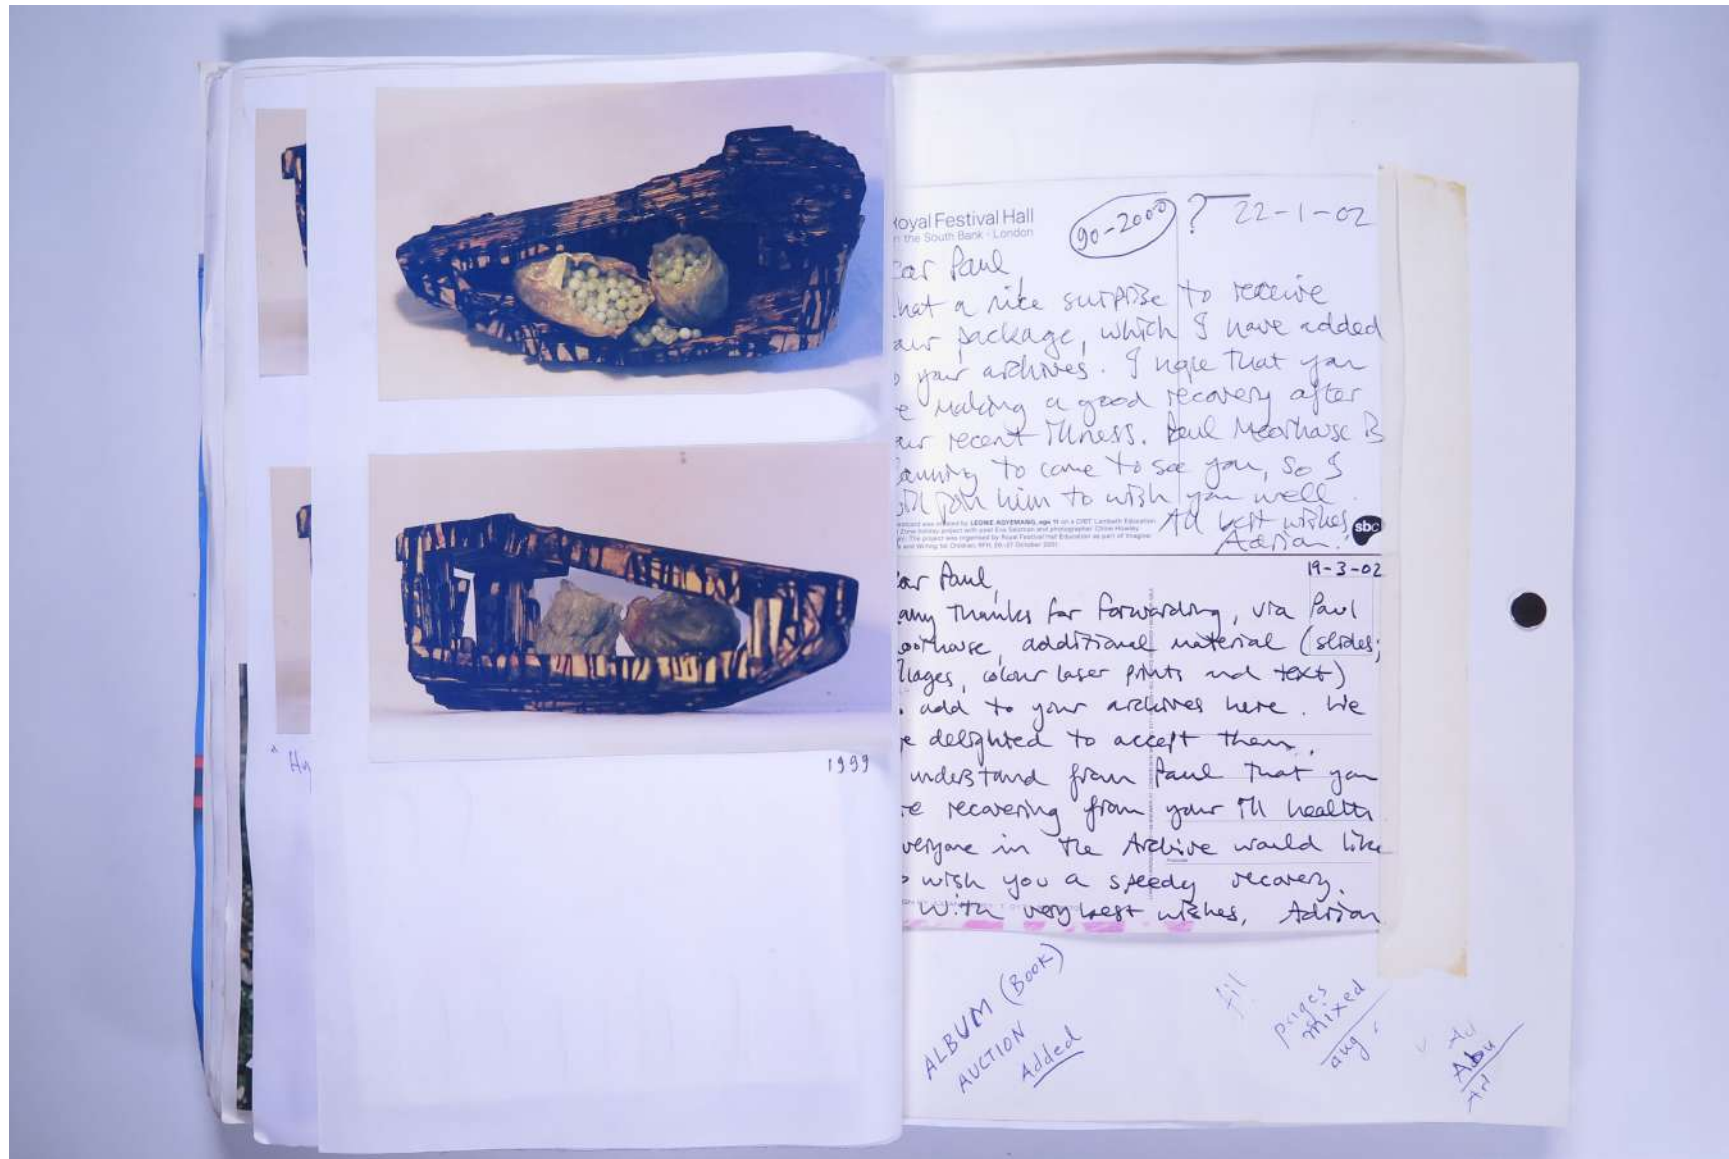 " Hy
1999
Royal Festival Hall
n the South Bank · London
90-2000 ? 22-1-02
ear Paul,
hat a nice surprise to receive
our package, which I have added
o your archives. I hope that you
e making a good recovery after
our recent illness. Paul Moorhouse is
anning to come to see you, so I
will join him to wish you well.
All best wishes
Adrian.
sbc
postcard was created by LEONIE AGYEMANG, age 11 on a CfBT Lambeth Education
19-3-02
ear Paul,
any thanks for forwarding, via Paul
oorhouse, additional material (slides;
llages, colour laser prints and text)
o add to your archives here. We
re delighted to accept them.
understand from Paul that you
re recovering from your ill health
veryone in the Archive would like
o wish you a speedy recovery.
With very best wishes, Adrian
ALBUM (BOOK)
AUCTION
Added
pages
mixed
aug